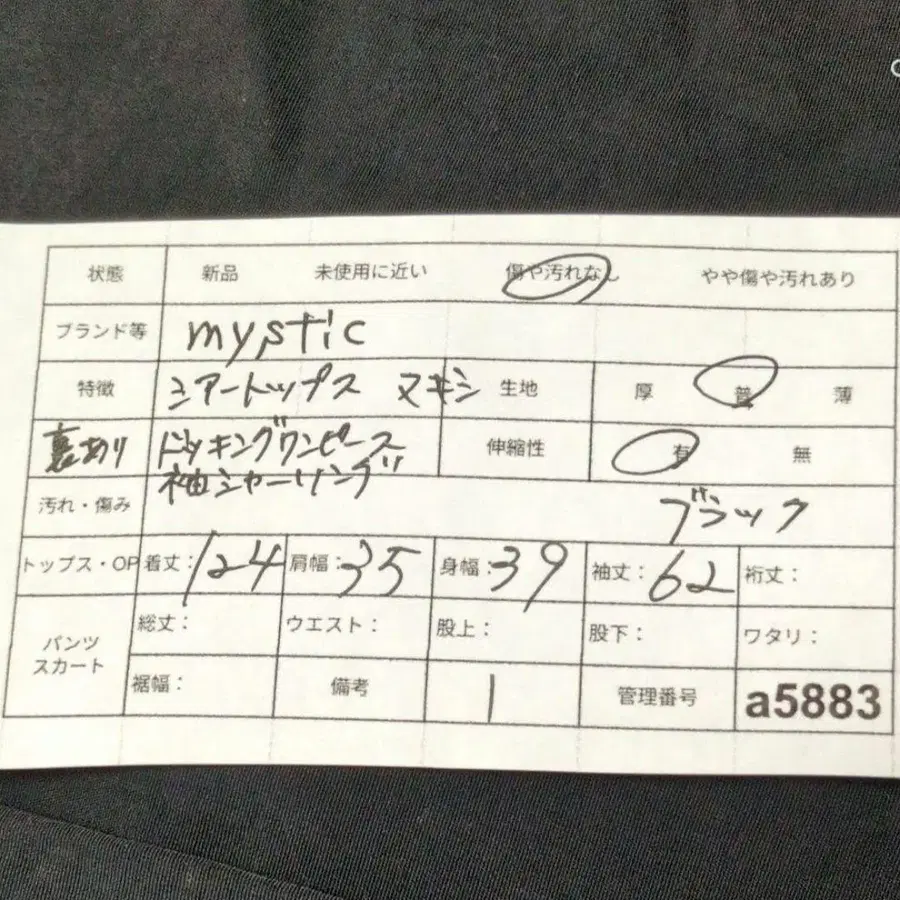 状態 新品 未使用に近い 傷や汚れなし やや傷や汚れあり
ブランド等 mystic
特徴 シアートップス マキシ 生地 厚 普 薄
裏あり ドッキングワンピース 伸縮性 有 無
袖シャーリング
汚れ・傷み ブラック
トップス・OP 着丈:124 肩幅:35 身幅:39 袖丈:62 裄丈:
パンツ スカート 総丈: ウエスト: 股上: 股下: ワタリ:
裾幅: 備考 1 管理番号 a5883